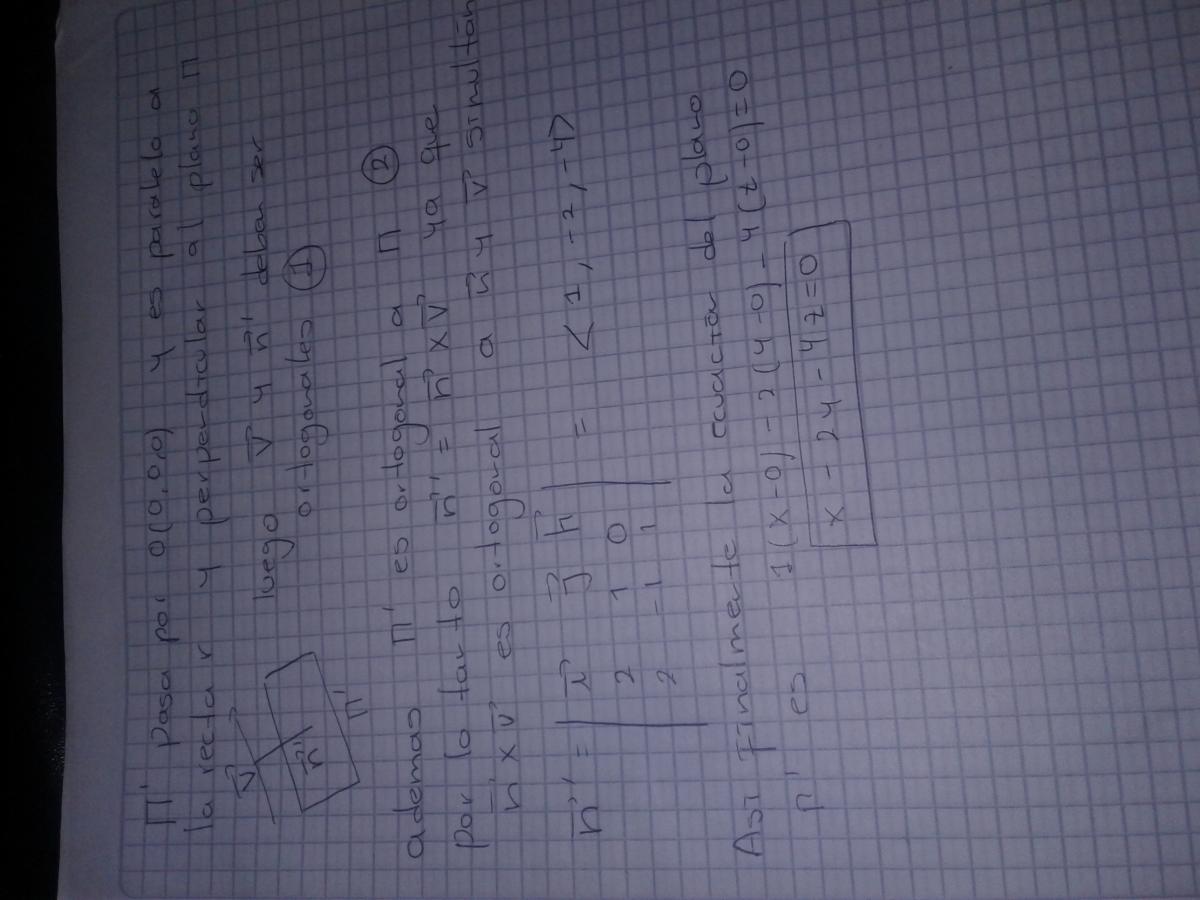 Π' pasa por O(0,0,0) y es paralelo a
la recta r y perpendicular al plano Π
luego v⃗ y n⃗' deban ser
ortogonales ①
v⃗
n⃗'
Π'
ademas Π' es ortogonal a Π ②
por lo tanto n⃗' = n⃗ x v⃗ ya que
n⃗ x v⃗ es ortogonal a n⃗ y v⃗ simultán
n⃗' = | i⃗ j⃗ k⃗ | = < 1, -2, -4>
2 1 0
2 -1 1
Así Finalmente la ecuación del plano
Π' es 1(x-0) - 2(y-0) - 4(z-0)=0
x - 2y - 4z=0